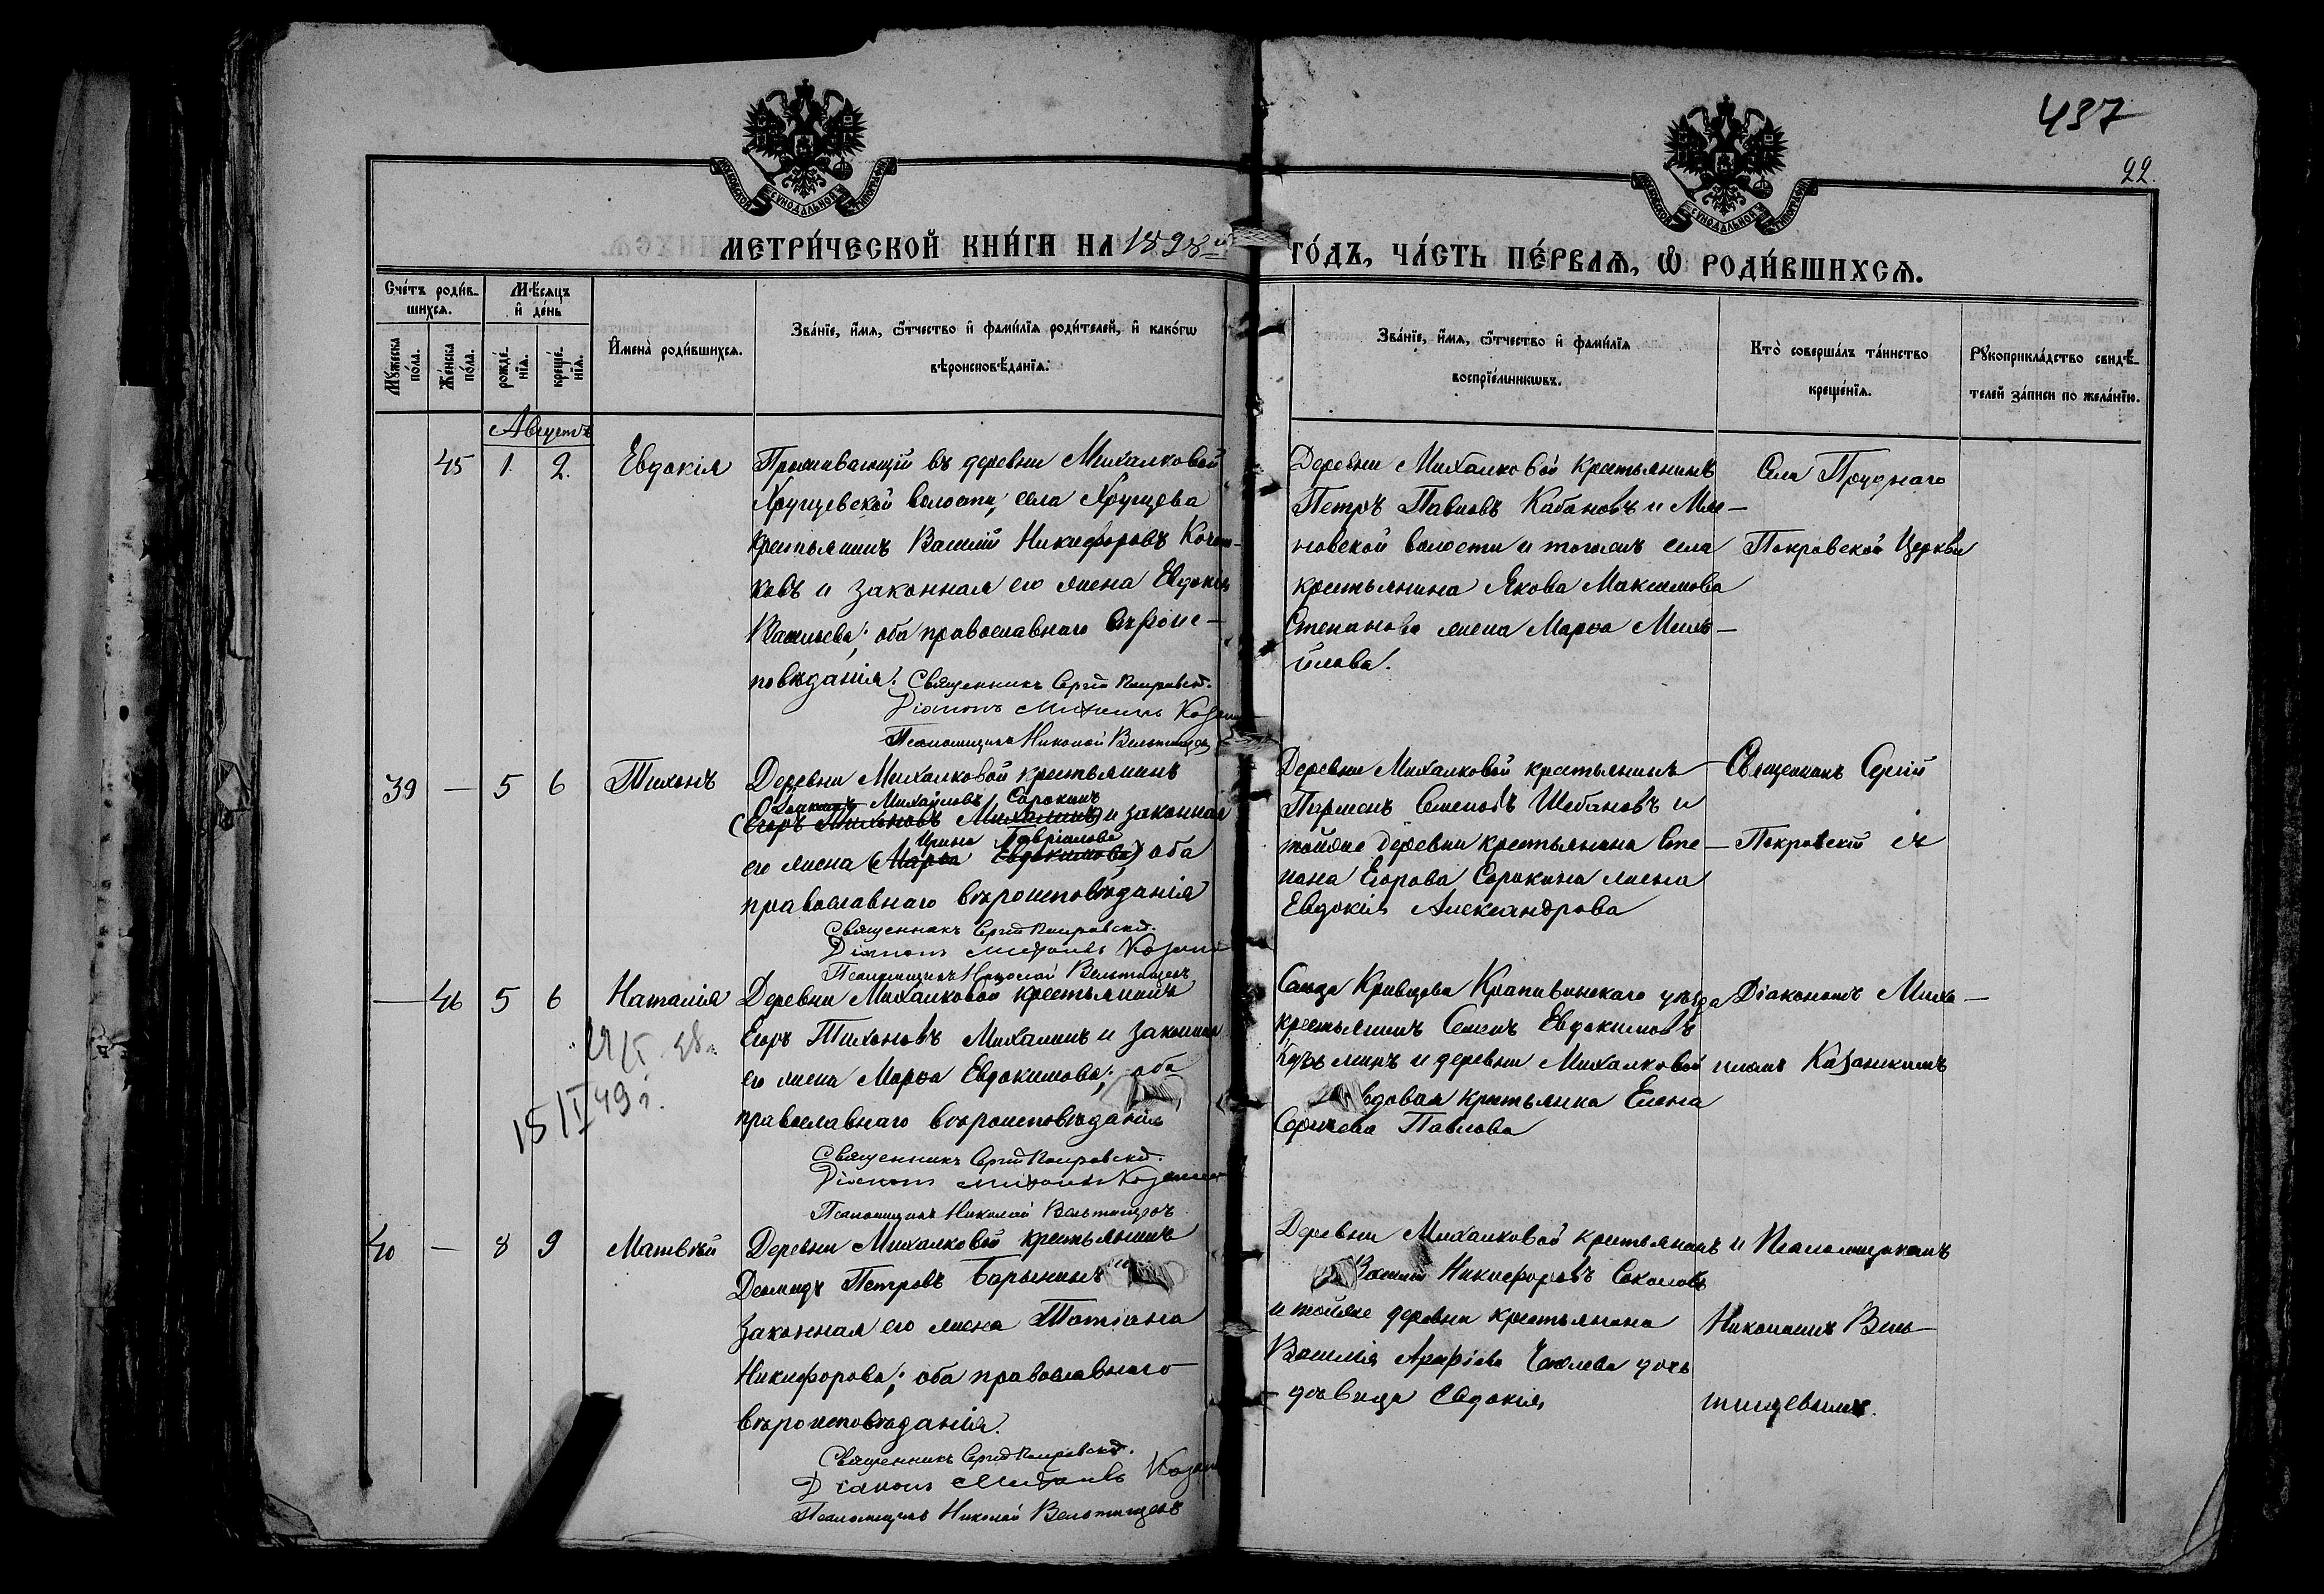 437
22.
МОСКОВСКОЙ СѴНОДАЛЬНОЙ ТИПОГРАФІИ
МОСКОВСКОЙ СѴНОДАЛЬНОЙ ТИПОГРАФІИ
МЕТРИ́ЧЕСКОЙ КНИ́ГИ НА 1898й
ГО́ДЪ, ЧА́СТЬ ПЕ́РВАѦ, Ѽ РОДИ́ВШИХСѦ.
Сче́тъ роди́в-
шихсѧ.
Мꙋ́жеска по́ла.
Же́нска по́ла.
Мѣ́сѧцъ
и҆ де́нь
рожде́-
нїѧ.
креще́-
нїѧ.
И҆мена̀ роди́вшихсѧ.
Зва́нїе, и҆́мѧ, ѻ҆́тчество и҆ фами́лїѧ роди́телей, и҆ како́гѡ
вѣроисповѣ́данїѧ.
Зва́нїе, и҆́мѧ, ѻ҆́тчество и҆ фами́лїѧ
воспрїе́мникѡвъ.
Кто̀ соверша́лъ та́инство
креще́нїѧ.
Рꙋкоприкла́дство свидѣ́-
телей за́писи по жела́нїю.
Августъ
45 1. 2. Евдокія
Проживающій въ деревни Михалковой
Хрущевской волости, села Хрущева
крестьянинъ Василій Никифоровъ
и законная его жена Евдокія
Васильева; оба православнаго вѣроис-
повѣданія.
Священникъ Сергій Покровскій.
Діаконъ Михаилъ
Псаломщикъ Николай Вельтищевъ
Деревни Михалковой крестьянинъ
Петръ Павловъ Кабановъ и
волости и тогожъ села
крестьянина Якова Максимова
Степанова жена Марѳа
Села Пруднаго
Покровской Церкви
39 — 5 6 Тихонъ
Деревни Михалковой крестьянинъ
Михайловъ Сорокинъ
(Егоръ Тихоновъ Михалинъ) и законная
Ирина Гавріилова
его жена (Марѳа Евдокимова) оба
православнаго вѣроисповѣданія
Священникъ Сергій Покровскій.
Діаконъ Михаилъ
Псаломщикъ Николай Вельтищевъ
Деревни Михалковой крестьянинъ
Семеновъ Шебановъ и
тойже деревни крестьянина Сте-
пана Егорова Сорокина жена
Евдокія Александрова
Священникъ Сергій
Покровскій съ
— 46 5 6 Наталія
15/I 49 г.
Деревни Михалковой крестьянинъ
Егоръ Тихоновъ Михалинъ и законная
его жена Марѳа Евдокимова; оба
православнаго вѣроисповѣданія
Священникъ Сергій Покровскій.
Діаконъ Михаилъ
Псаломщикъ Николай Вельтищевъ
Кривцева Крапивинскаго уѣзда
крестьянинъ Семенъ Евдокимовъ
Кузьминъ и деревни Михалковой
вдовая крестьянка Елена
Сергѣева Павлова
Діакономъ Миха-
иломъ Казанскимъ
40 — 8 9 Матвѣй
Деревни Михалковой крестьянинъ
Діомидъ Петровъ Барынинъ и
законная его жена Татіана
Никифорова; оба православнаго
вѣроисповѣданія.
Священникъ Сергій Покровскій.
Діаконъ Михаилъ
Псаломщикъ Николай Вельтищевъ
Деревни Михалковой крестьянинъ
Василій Никифоровъ Соколовъ
и тойже деревни крестьянина
Василія дочь
дѣвица Евдокія
и Псаломщикомъ
Николаемъ Вель-
тищевымъ.